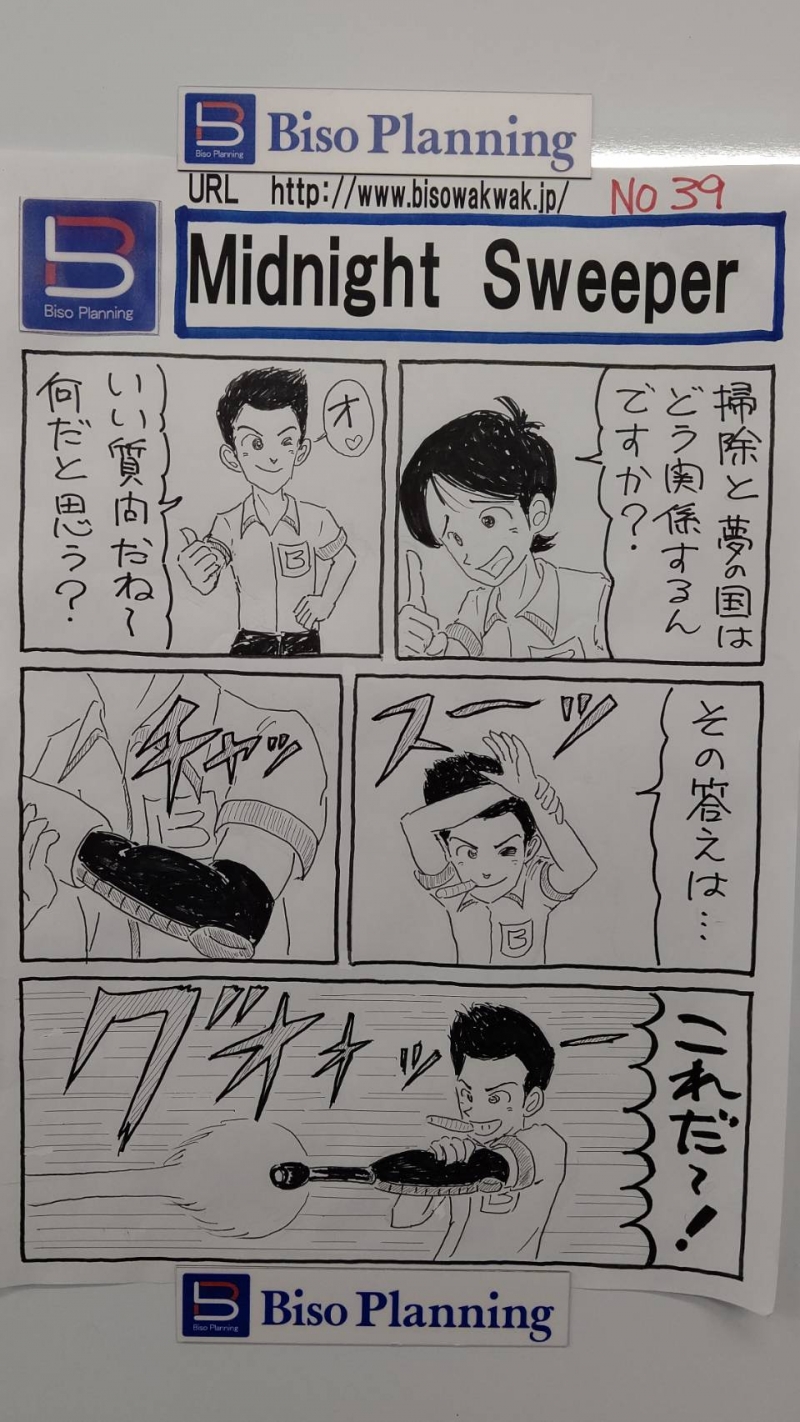 B
Biso Planning
Biso Planning
URL http://www.bisowakwak.jp/
NO 39
B
Biso Planning
Midnight Sweeper
掃除と夢の国は
どう関係するん
ですか?
B
オ♡
いい質問だね~
何だと思う?
B
その答えは…
スーッ
B
チャッ
B
これだ~!
グオォッー
B
B
Biso Planning
Biso Planning